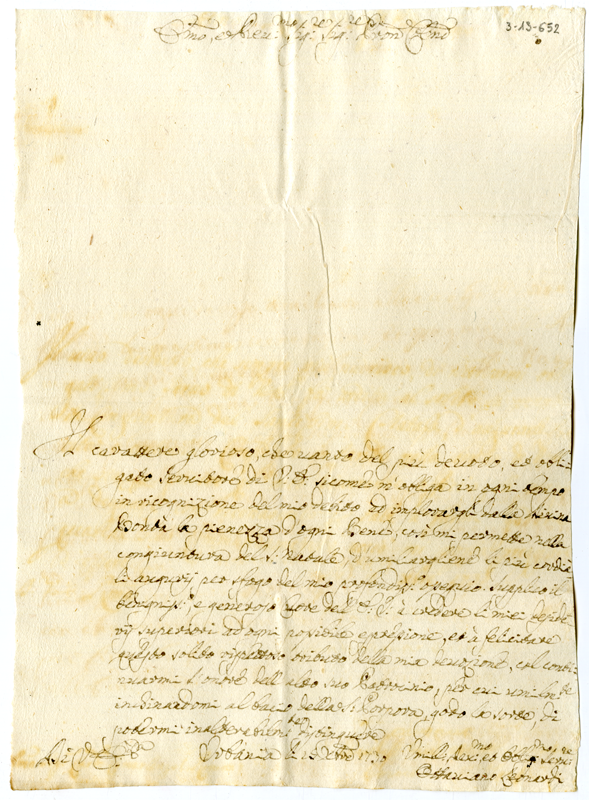 3-13-652
Emo, e Reu: Sig: Sig: Pron Cmo
Il carattere glorioso, che vanto del più devoto, ed obli-
gato servitore di V. E. sicome m'obliga in ogni tempo
in ricognizione del mio debito ad implorargli dalla Divina
Bontà la pienezza d'ogni bene, così mi permette nella
congiuntura del S. Natale d'umiliargliene li più cordia-
li augurij per sfogo del mio profondiss: ossequio. Supplico il
benigniss: e generoso Cuore dell'E. V. a credere li miei deside-
rij superiori ad ogni posibile espressione, et a felicitare
questo solito rispettoso tributo della mia devozione, col conti-
nuarmi l'onore dell'alto suo Padrocinio, per cui umilmte
inclinandomi al bacio della S. Porpora, godo la sorte di
potermi inalterabilmte distinguere
Di V. E. Urbania li 15 Xbre 1730 Umiliss. Devmo ed Obligmo Servre
Ottaviano Leonardi